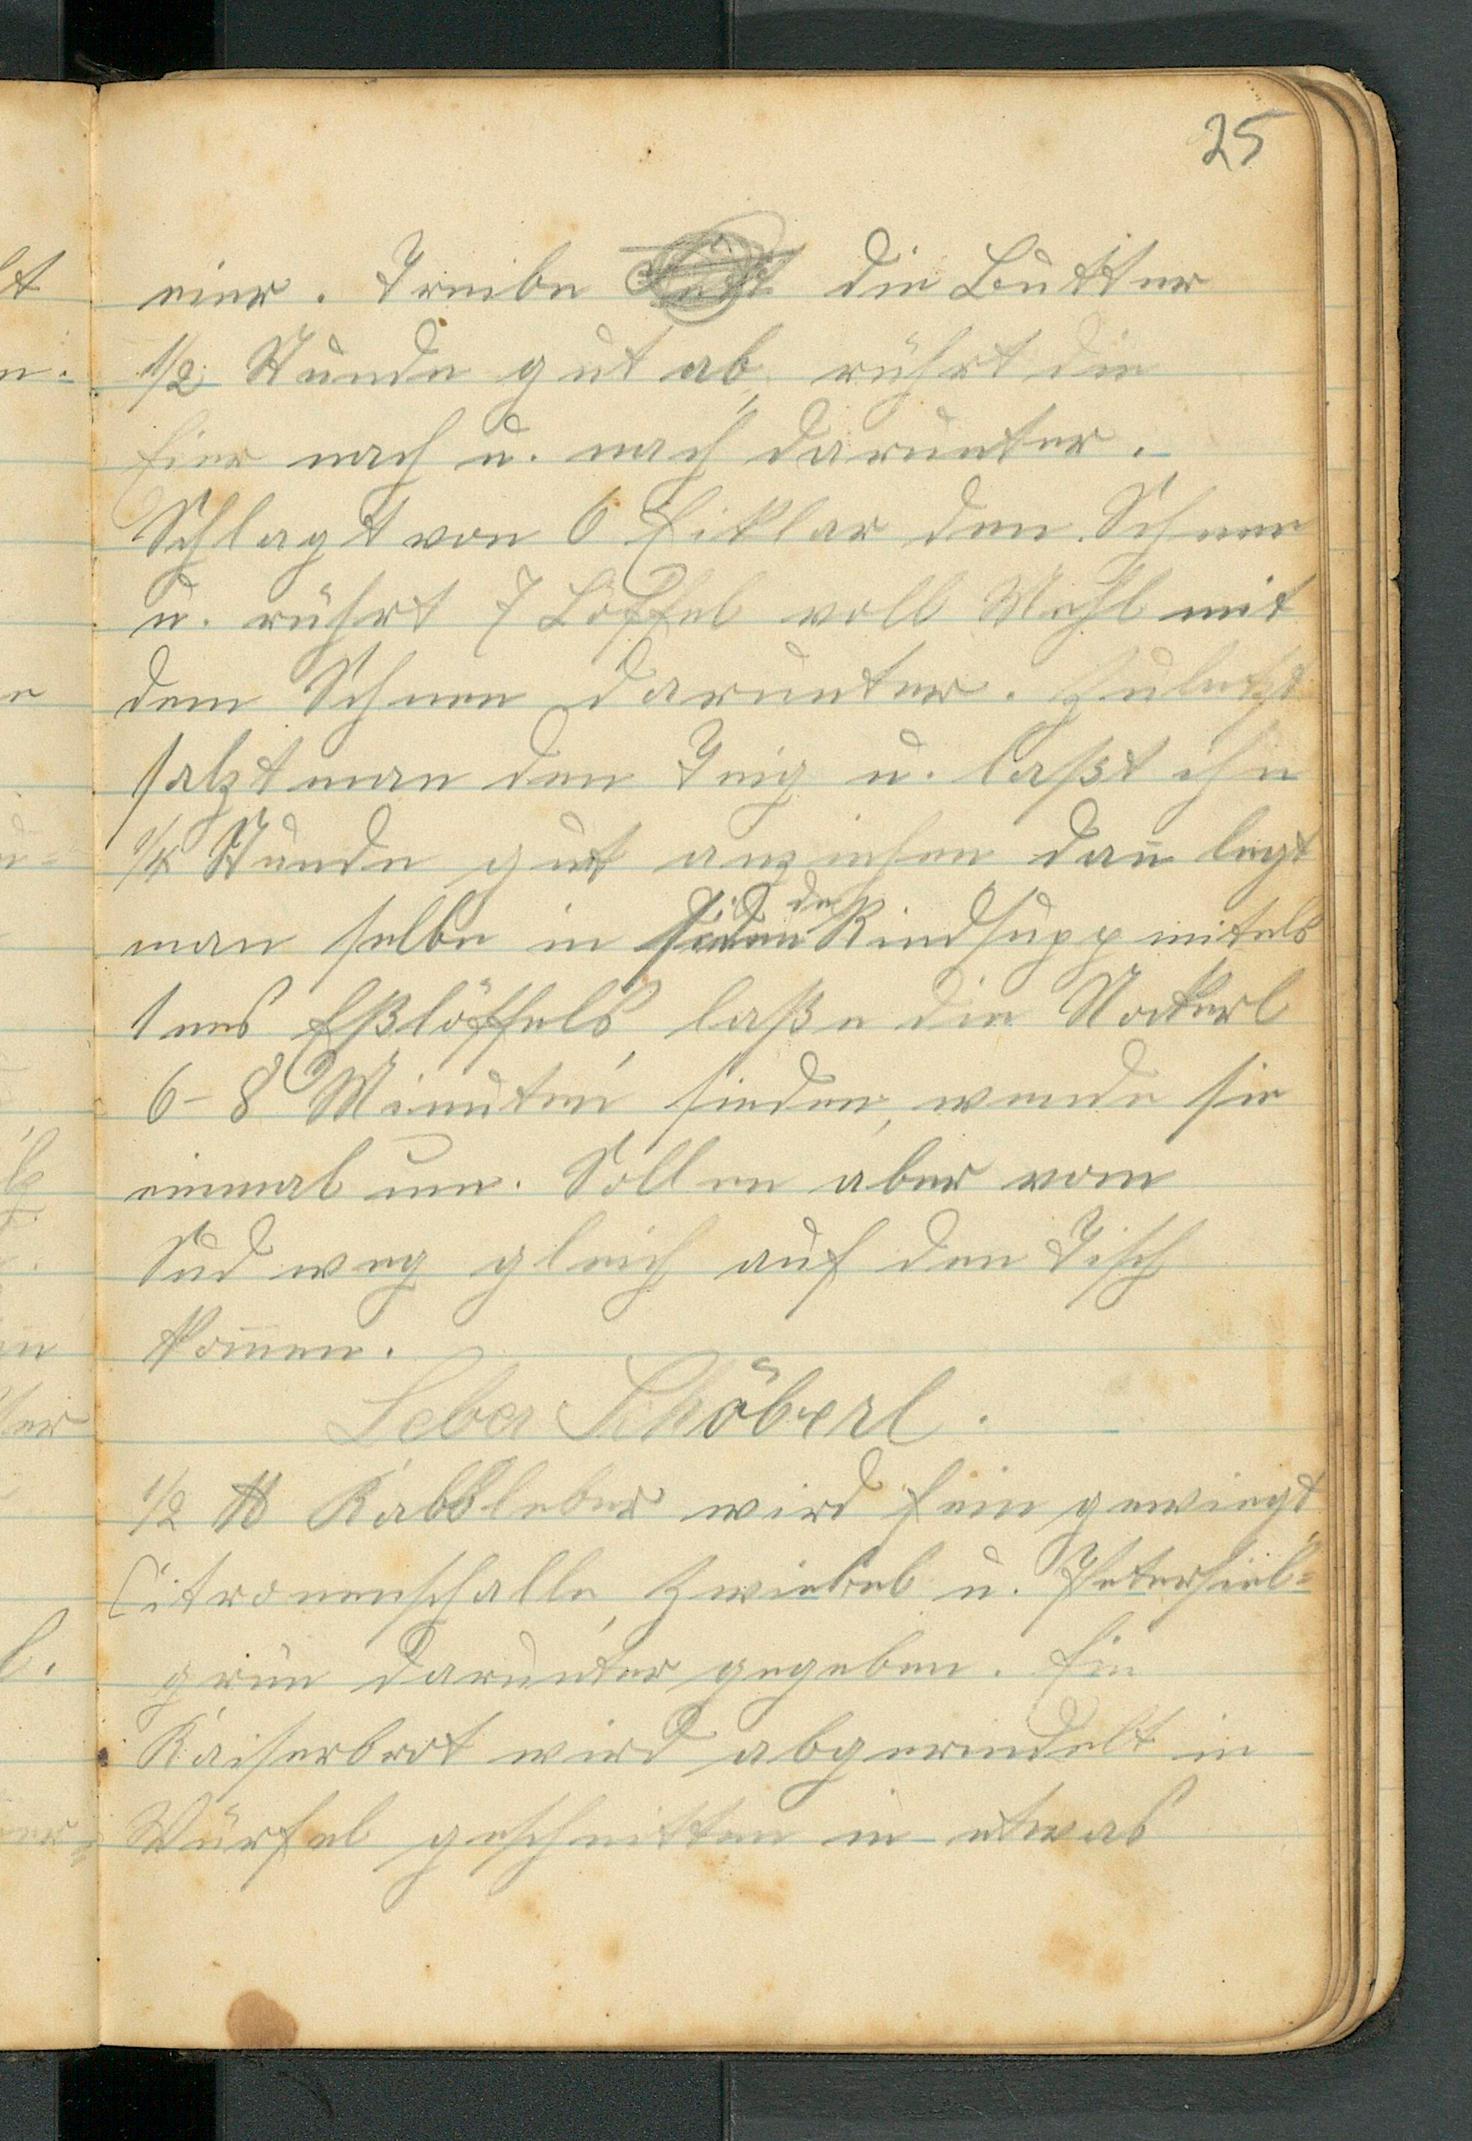 25
eier. Treibe die Butter
1/2 Stunde gut ab, rührt die
Eier nach u. nach darunter.
Schlagt von 6 Eiklar den Schnee
u. rührt 7 Löffel voll Mehl mit
dem Schnee darunter. Zuletzt
salzt man den Teig u. laßt ihn
1/4 Stunde gut anziehen dan̄ legt
man selbe in siedende Rindsupp mittels
1nes Eßlöffels, laße die Nockerl
6-8 Minuten sieden, wende sie
einmal um. Sollen aber vom
Sud weg gleich auf den Tisch
kom̄en.
Leber Schöberl.
1/2 ℔ Kalbsleber wird fein gewiegt,
Citronenschalle, Zwiebel u. Petersiel=
grün darunter gegeben. Ein
Kaiserbrot wird abgerindelt in
Würfel geschnitten in etwas